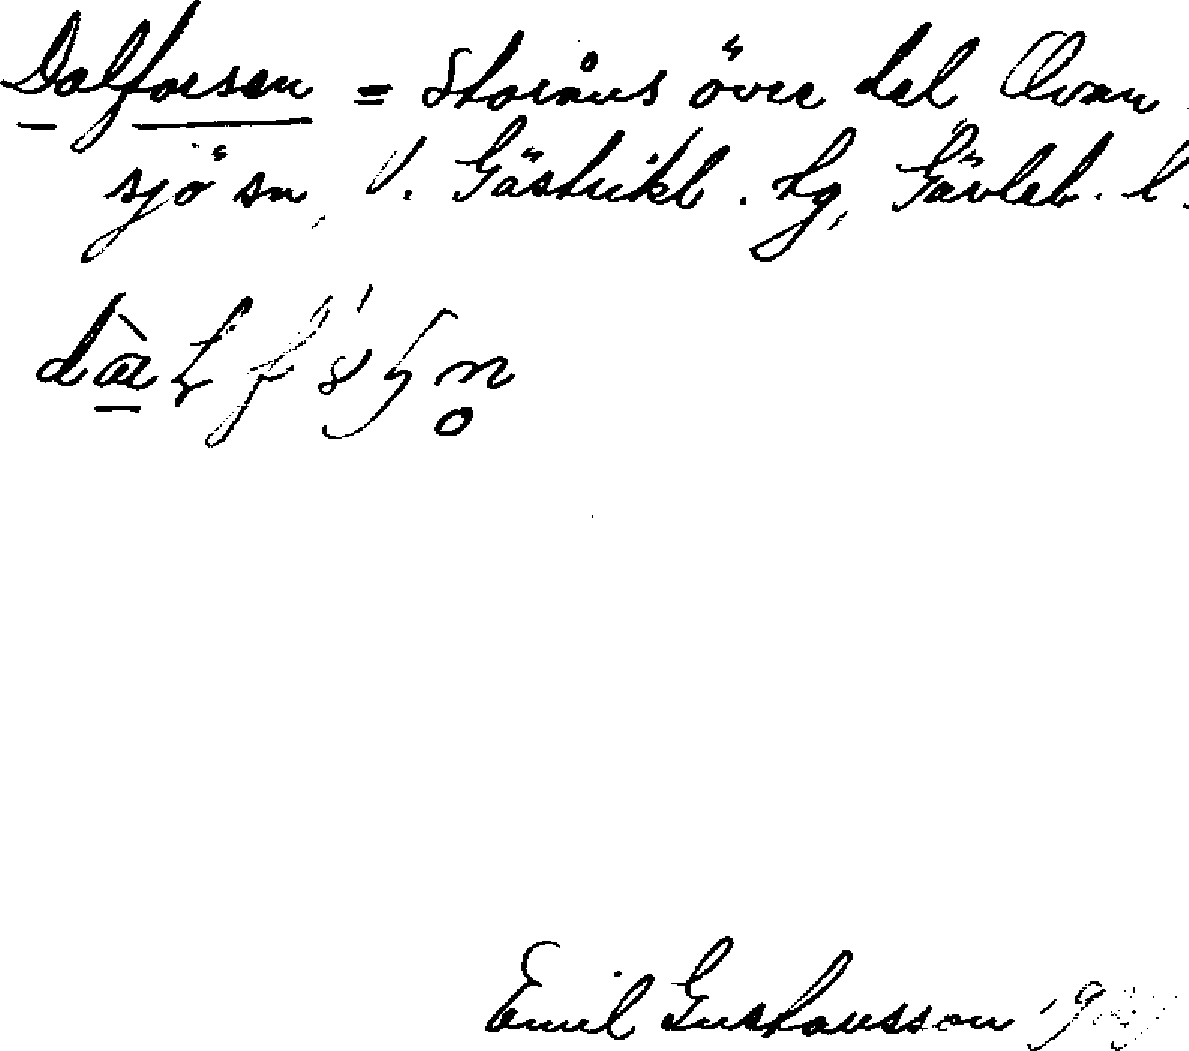 Dalforsen = Storåns övre del Ovan
sjö sn, V. Gästrikl. tg, Gävleb. l.
Emil Gustavsson 19